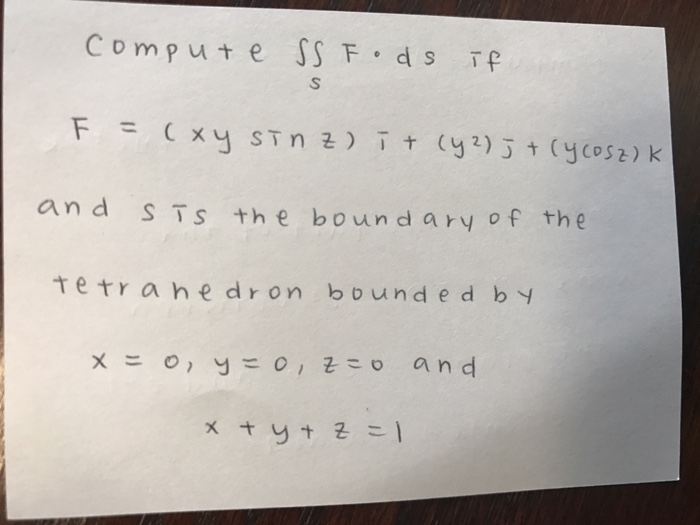 Compute ∬ F • ds if
S
F = (xy sin z) i + (y²) j + (ycosz) k
and S is the boundary of the
tetrahedron bounded by
x = 0, y = 0, z = 0 and
x + y + z = 1